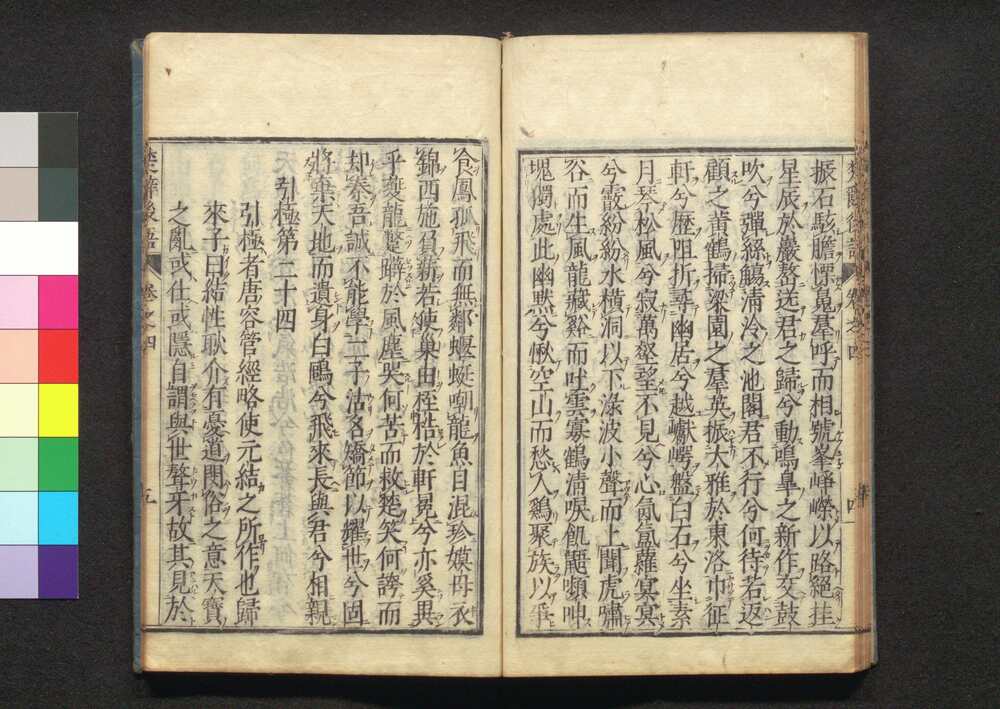 楚辭後語 卷之四
振石駭膽慄魄羣呼而相號峯崢嶸以路絕挂
星辰於巖嶅送君之歸兮動鳴皐之新作交鼓
吹兮彈絲觴清泠之池閣君不行兮何待若返
顧之黃鶴掃梁園之羣英振大雅於東洛巾征
軒兮歷阻折尋幽居兮越巘崿盤白石兮坐素
月琴松風兮寂萬壑望不見兮心氛氳蘿冥冥
兮霰紛紛水橫洞以下淥波小聲而上聞虎嘯
谷而生風龍藏谿而吐雲寡鶴清唳飢鼯嚬呻
塊獨處此幽默兮愀空山而愁人鷄聚族以爭
食鳳孤飛而無鄰蝘蜓嘲龍魚目混珍嫫母衣
錦西施負薪若使巢由桎梏於軒冕兮亦奚異
乎夔龍蹩躠於風塵哭何苦而救楚笑何誇而
却秦吾誠不能學二子沽名矯節以耀世兮固
將棄天地而遺身白鷗兮飛來長與君兮相親
引極第二十四
引極者唐容管經略使元結之所作也歸
來子曰結性耿介有憂道閔俗之意天寶
之亂或仕或隱自謂與世聱牙故其見於
楚辭後語 卷之四 五